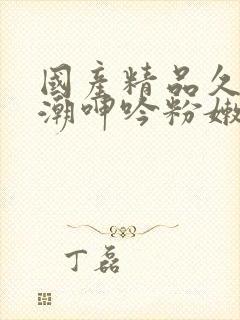 國產精品久
潮呻吟粉嫩
丁磊